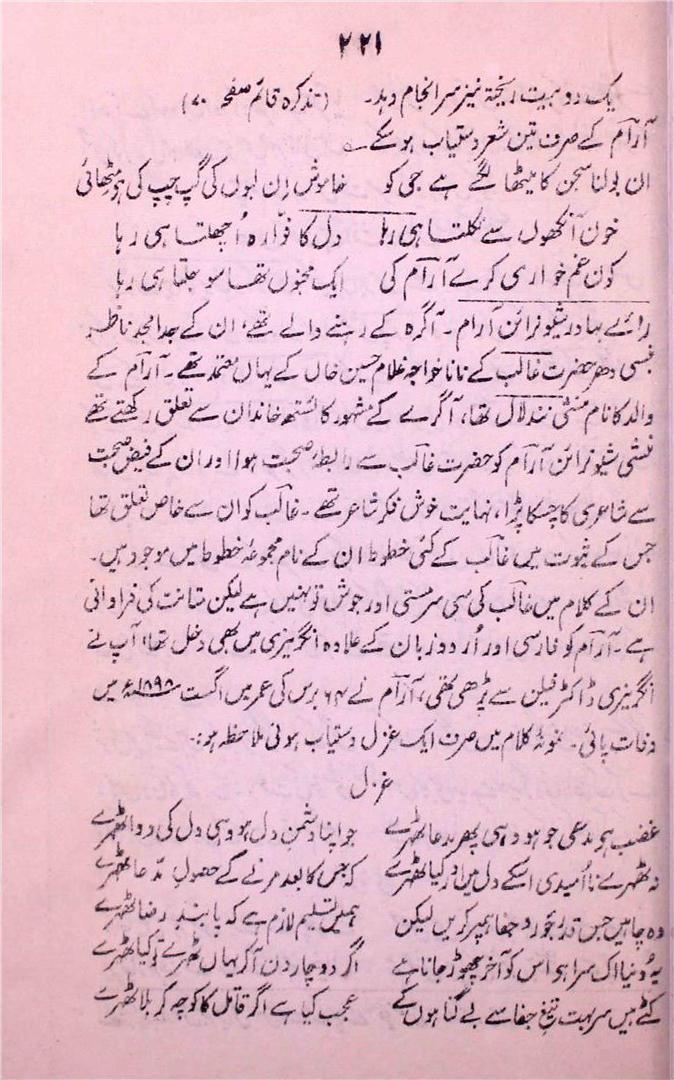 ۲۲۱
یک دو بیت ریختہ نیز سرانجام دہد۔ (تذکرہ قائم صفحہ ۷۰)
آرام کے صرف تین شعر دستیاب ہو سکے
ان بولنا سجن کا میٹھا لگے ہے جی کو خاموش اِن لبوں کی گپ چپ کی ہو مٹھائی
خون آنکھوں سے نکلتا ہی رہا دل کا فوّارہ اُچھلتا ہی رہا
کون غم خواری کرے آرام کی ایک مجنوں تھا سو جلتا ہی رہا
رائے بہادر شیو نرائن آرام۔ آگرہ کے رہنے والے تھے، ان کے جد امجد ناظر
بنسی دھر حضرت غالب کے نانا خواجہ غلام حسین خاں کے یہاں معتمد تھے۔ آرام کے
والد کا نام منشی نند لال تھا، آگرے کے مشہور کائستھ خاندان سے تعلق رکھتے تھے
منشی شیو نرائن آرام کو حضرت غالب سے رابطۂ صحبت ہوا اور ان کے فیض صحبت
سے شاعری کا چسکا پڑا، نہایت خوش فکر شاعر تھے۔ غالب کو ان سے خاص تعلق تھا
جس کے ثبوت میں غالب کے کئی خطوط ان کے نام مجموعۂ خطوط میں موجود ہیں۔
ان کے کلام میں غالب کی سی سرمستی اور جوش تو نہیں ہے لیکن متانت کی فراوانی
ہے۔ آرام کو فارسی اور اُردو زبان کے علاوہ انگریزی میں بھی دخل تھا، آپ نے
انگریزی ڈاکٹر فیلن سے پڑھی تھی، آرام نے ۶۴ برس کی عمر میں اگست ۱۸۹۸ء میں
وفات پائی۔ نمونۂ کلام میں صرف ایک غزل دستیاب ہوئی ملاحظہ ہو:۔
غزل
غضب ہو مدعی جو ہو وہی پھر مدعا ٹھہرے جو اپنا دشمنِ دل ہو وہی دل کی دوا ٹھہرے
نہ ٹھہرے نا اُمیدی اسکے دل میں اور کیا ٹھہرے کہ جس کا بعد مرنے کے حصولِ مدّعا ٹھہرے
وہ چاہیں جس قدر جور و جفا ہم پر کریں لیکن ہمیں تسلیم لازم ہے کہ پابندِ رضا ٹھہرے
یہ دُنیا اک سرا ہو اس کو آخر چھوڑ جانا ہے اگر دو چار دن آکر یہاں ٹھہرے تو کیا ٹھہرے
کٹے ہیں سر بہت تیغِ جفا سے بے گناہوں کے عجب کیا ہے اگر قاتل کا کوچہ کربلا ٹھہرے